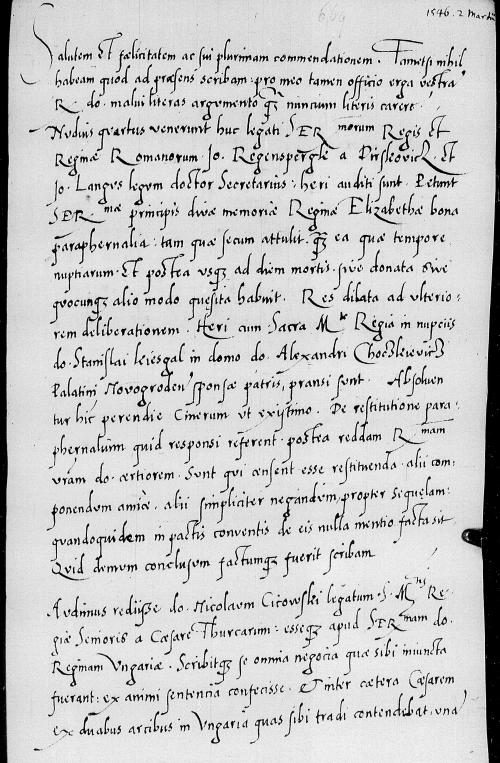 1546. 2 Martii
Salutem Et fælicitatem ac sui plurimam commendationem. Tametsi nihil
habeam quod ad præsens scribam: pro meo tamen officio erga vestra
R. do. malui literas argumento q3 nuncium literis carere
Nudius quartus venerunt huc legati SER morum Regis Et
Reginæ Romanorum Jo. Regensperger a Et
Jo. Langus legum doctor Secretarius: heri auditi sunt. Petunt
SER mæ principis divæ memoriæ Reginæ Elizabethæ bona
paraphernalia: tam quæ secum attulit q3 ea quæ tempore
nuptiarum Et postea usq3 ad diem mortis sive donata sive
quocunq3 alio modo quesita habuit. Res dilata ad ulterio:
rem deliberationem. Heri cum Sacra M te Regia in nupciis
do. Stanislai in domo do. Alexandri
Palatini Novogroden sponsæ patris, pransi sunt. Absolven
tur hic perendie Cinerum ut existimo. De restitutione para:
phernalium quid responsi referent postea reddam R mam
vram do. certiorem. Sunt qui censent esse restituenda alii com:
ponendum amice. alii simpliciter negandum, propter sequelam:
quandoquidem in pactis conventis de eis nulla mentio facta sit
Quid demum conclusum factumq3 fuerit scribam
Audimus rediisse do. Nicolaum Cikowski legatum S. M tis Re:
giæ Senioris a Cæsare Thurcarum: esseq3 apud SER mam do.
Reginam Ungariæ. Scribitq3 se omnia negocia quæ sibi iniuncta
fuerant: ex animi sententia confecisse. Et inter cætera Cæsarem
ex duabus arcibus in Ungaria quas sibi tradi contendebat, una